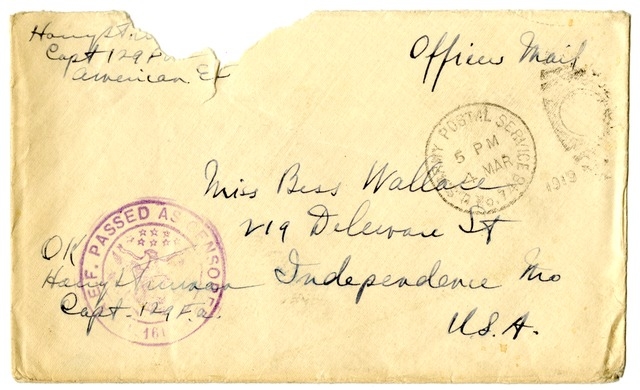 Harry S.
Capt 129 F
American Ex
Officers Mail
ARMY POSTAL SERVICE
5 PM
MAR
1919
Miss Bess Wallace
219 Deleware St
Independence Mo
U.S.A.
A.E.F. PASSED AS CENSORED
OK
Harry S Truman
Capt. 129 F.a.